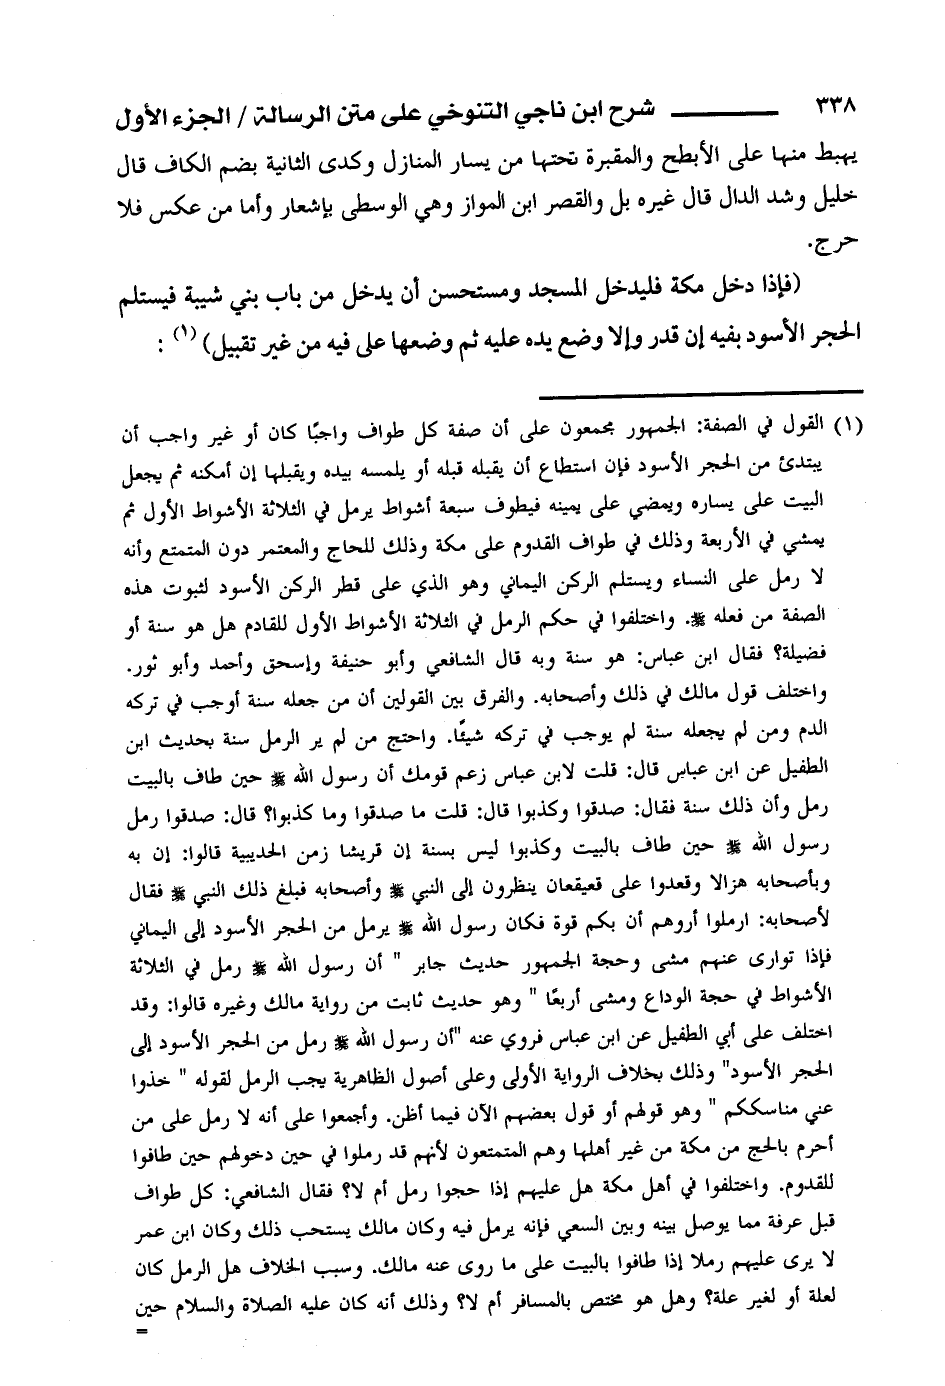 ٣٣٨ ــــــــــ شرح ابن ناجي التنوخي على متن الرسالة / الجزء الأول
يهبط منها على الأبطح والمقبرة تحتها من يسار المنازل وكدى الثانية بضم الكاف قال
خليل وشد الدال قال غيره بل والقصر ابن المواز وهي الوسطى بإشعار وأما من عكس فلا
حرج.
(فإذا دخل مكة فليدخل المسجد ومستحسن أن يدخل من باب بني شيبة فيستلم
الحجر الأسود بفيه إن قدر وإلا وضع يده عليه ثم وضعها على فيه من غير تقبيل)(١) :
(١) القول في الصفة: الجمهور مجمعون على أن صفة كل طواف واجبًا كان أو غير واجب أن
يبتدئ من الحجر الأسود فإن استطاع أن يقبله قبله أو يلمسه بيده ويقبلها إن أمكنه ثم يجعل
البيت على يساره ويمضي على يمينه فيطوف سبعة أشواط يرمل في الثلاثة الأشواط الأول ثم
يمشي في الأربعة وذلك في طواف القدوم على مكة وذلك للحاج والمعتمر دون المتمتع وأنه
لا رمل على النساء ويستلم الركن اليماني وهو الذي على قطر الركن الأسود لثبوت هذه
الصفة من فعله ﷺ. واختلفوا في حكم الرمل في الثلاثة الأشواط الأول للقادم هل هو سنة أو
فضيلة؟ فقال ابن عباس: هو سنة وبه قال الشافعي وأبو حنيفة وإسحق وأحمد وأبو ثور.
واختلف قول مالك في ذلك وأصحابه. والفرق بين القولين أن من جعله سنة أوجب في تركه
الدم ومن لم يجعله سنة لم يوجب في تركه شيئًا. واحتج من لم ير الرمل سنة بحديث ابن
الطفيل عن ابن عباس قال: قلت لابن عباس زعم قومك أن رسول الله ﷺ حين طاف بالبيت
رمل وأن ذلك سنة فقال: صدقوا وكذبوا قال: قلت ما صدقوا وما كذبوا؟ قال: صدقوا رمل
رسول الله ﷺ حين طاف بالبيت وكذبوا ليس بسنة إن قريشا زمن الحديبية قالوا: إن به
وبأصحابه هزالا وقعدوا على قعيقعان ينظرون إلى النبي ﷺ وأصحابه فبلغ ذلك النبي ﷺ فقال
لأصحابه: ارملوا أروهم أن بكم قوة فكان رسول الله ﷺ يرمل من الحجر الأسود إلى اليماني
فإذا توارى عنهم مشى وحجة الجمهور حديث جابر " أن رسول الله ﷺ رمل في الثلاثة
الأشواط في حجة الوداع ومشى أربعًا " وهو حديث ثابت من رواية مالك وغيره قالوا: وقد
اختلف على أبي الطفيل عن ابن عباس فروي عنه "أن رسول الله ﷺ رمل من الحجر الأسود إلى
الحجر الأسود" وذلك بخلاف الرواية الأولى وعلى أصول الظاهرية يجب الرمل لقوله " خذوا
عني مناسككم " وهو قولهم أو قول بعضهم الآن فيما أظن. وأجمعوا على أنه لا رمل على من
أحرم بالحج من مكة من غير أهلها وهم المتمتعون لأنهم قد رملوا في حين دخولهم حين طافوا
للقدوم. واختلفوا في أهل مكة هل عليهم إذا حجوا رمل أم لا؟ فقال الشافعي: كل طواف
قبل عرفة مما يوصل بينه وبين السعي فإنه يرمل فيه وكان مالك يستحب ذلك وكان ابن عمر
لا يرى عليهم رملا إذا طافوا بالبيت على ما روى عنه مالك. وسبب الخلاف هل الرمل كان
لعلة أو لغير علة؟ وهل هو مختص بالمسافر أم لا؟ وذلك أنه كان عليه الصلاة والسلام حين
=